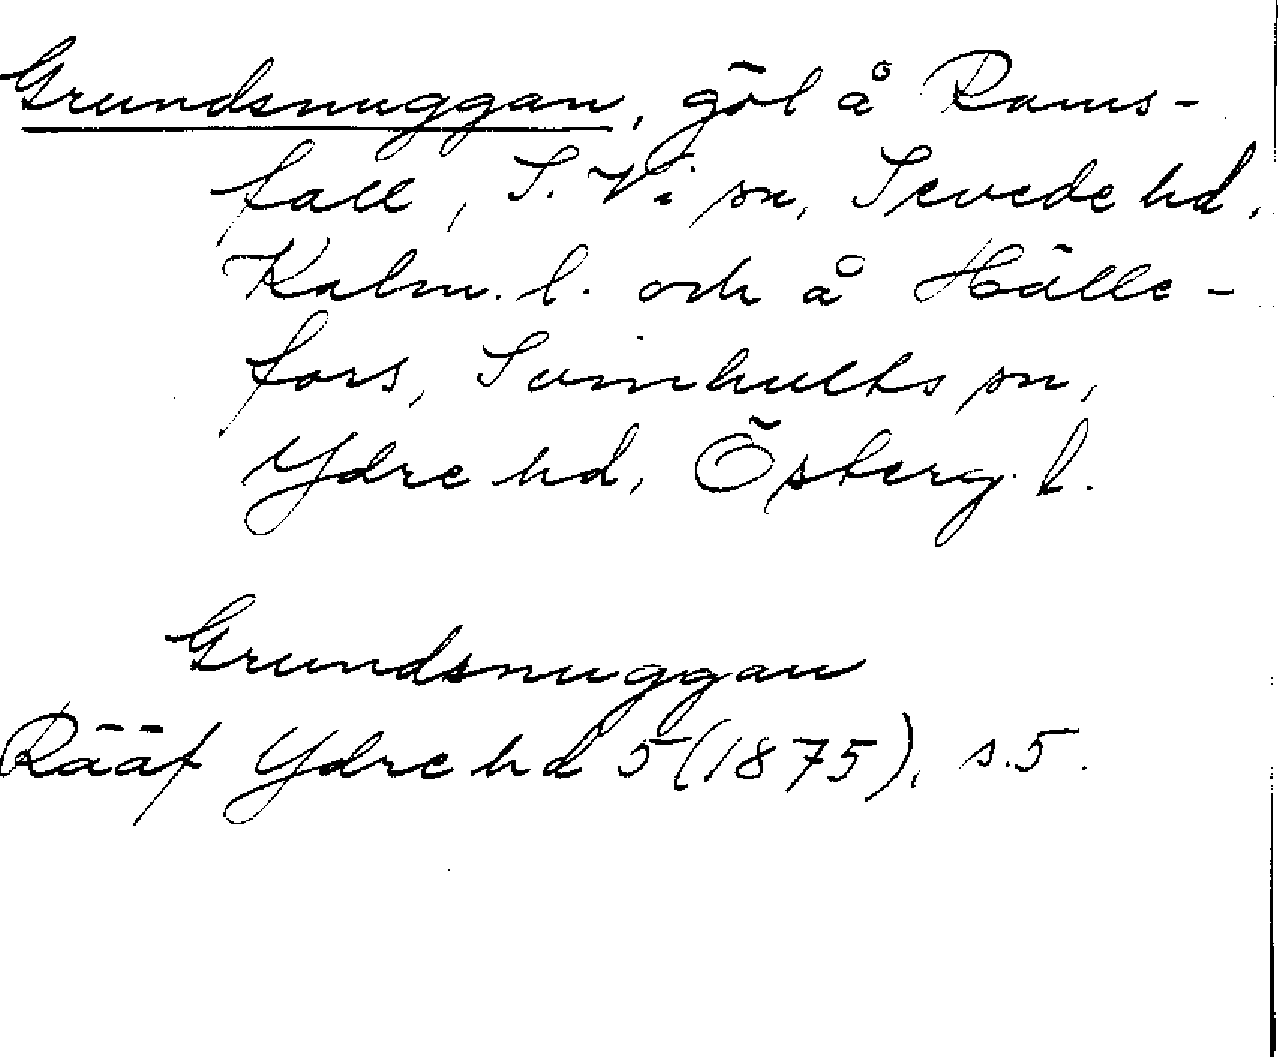 Grundsnuggan, göl å Rams-
fall, S. Vi sn, Sevede hd,
Kalm. l. och å Hälle-
fors, Svinhults sn,
Ydre hd, Österg. l.
Grundsnuggan
Rääf Ydre hd 5 (1875), s. 5.